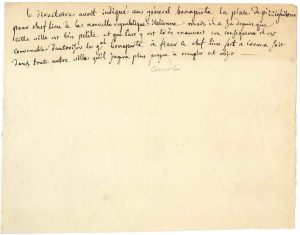 le directoire avoit indiqué au général bonaparte la place de pizzighittone
pour chef lieu de la nouvelle république italienne - mais il a su depuis que
cette ville est très petite et que l'air y est très mauvais en conséquence il est
convenable d'autoriser le gal bonaparte à fixer le chef lieu soit à crema soit
dans toute autre ville qu'il jugera plus propre à remplir cet objet.
Carnot